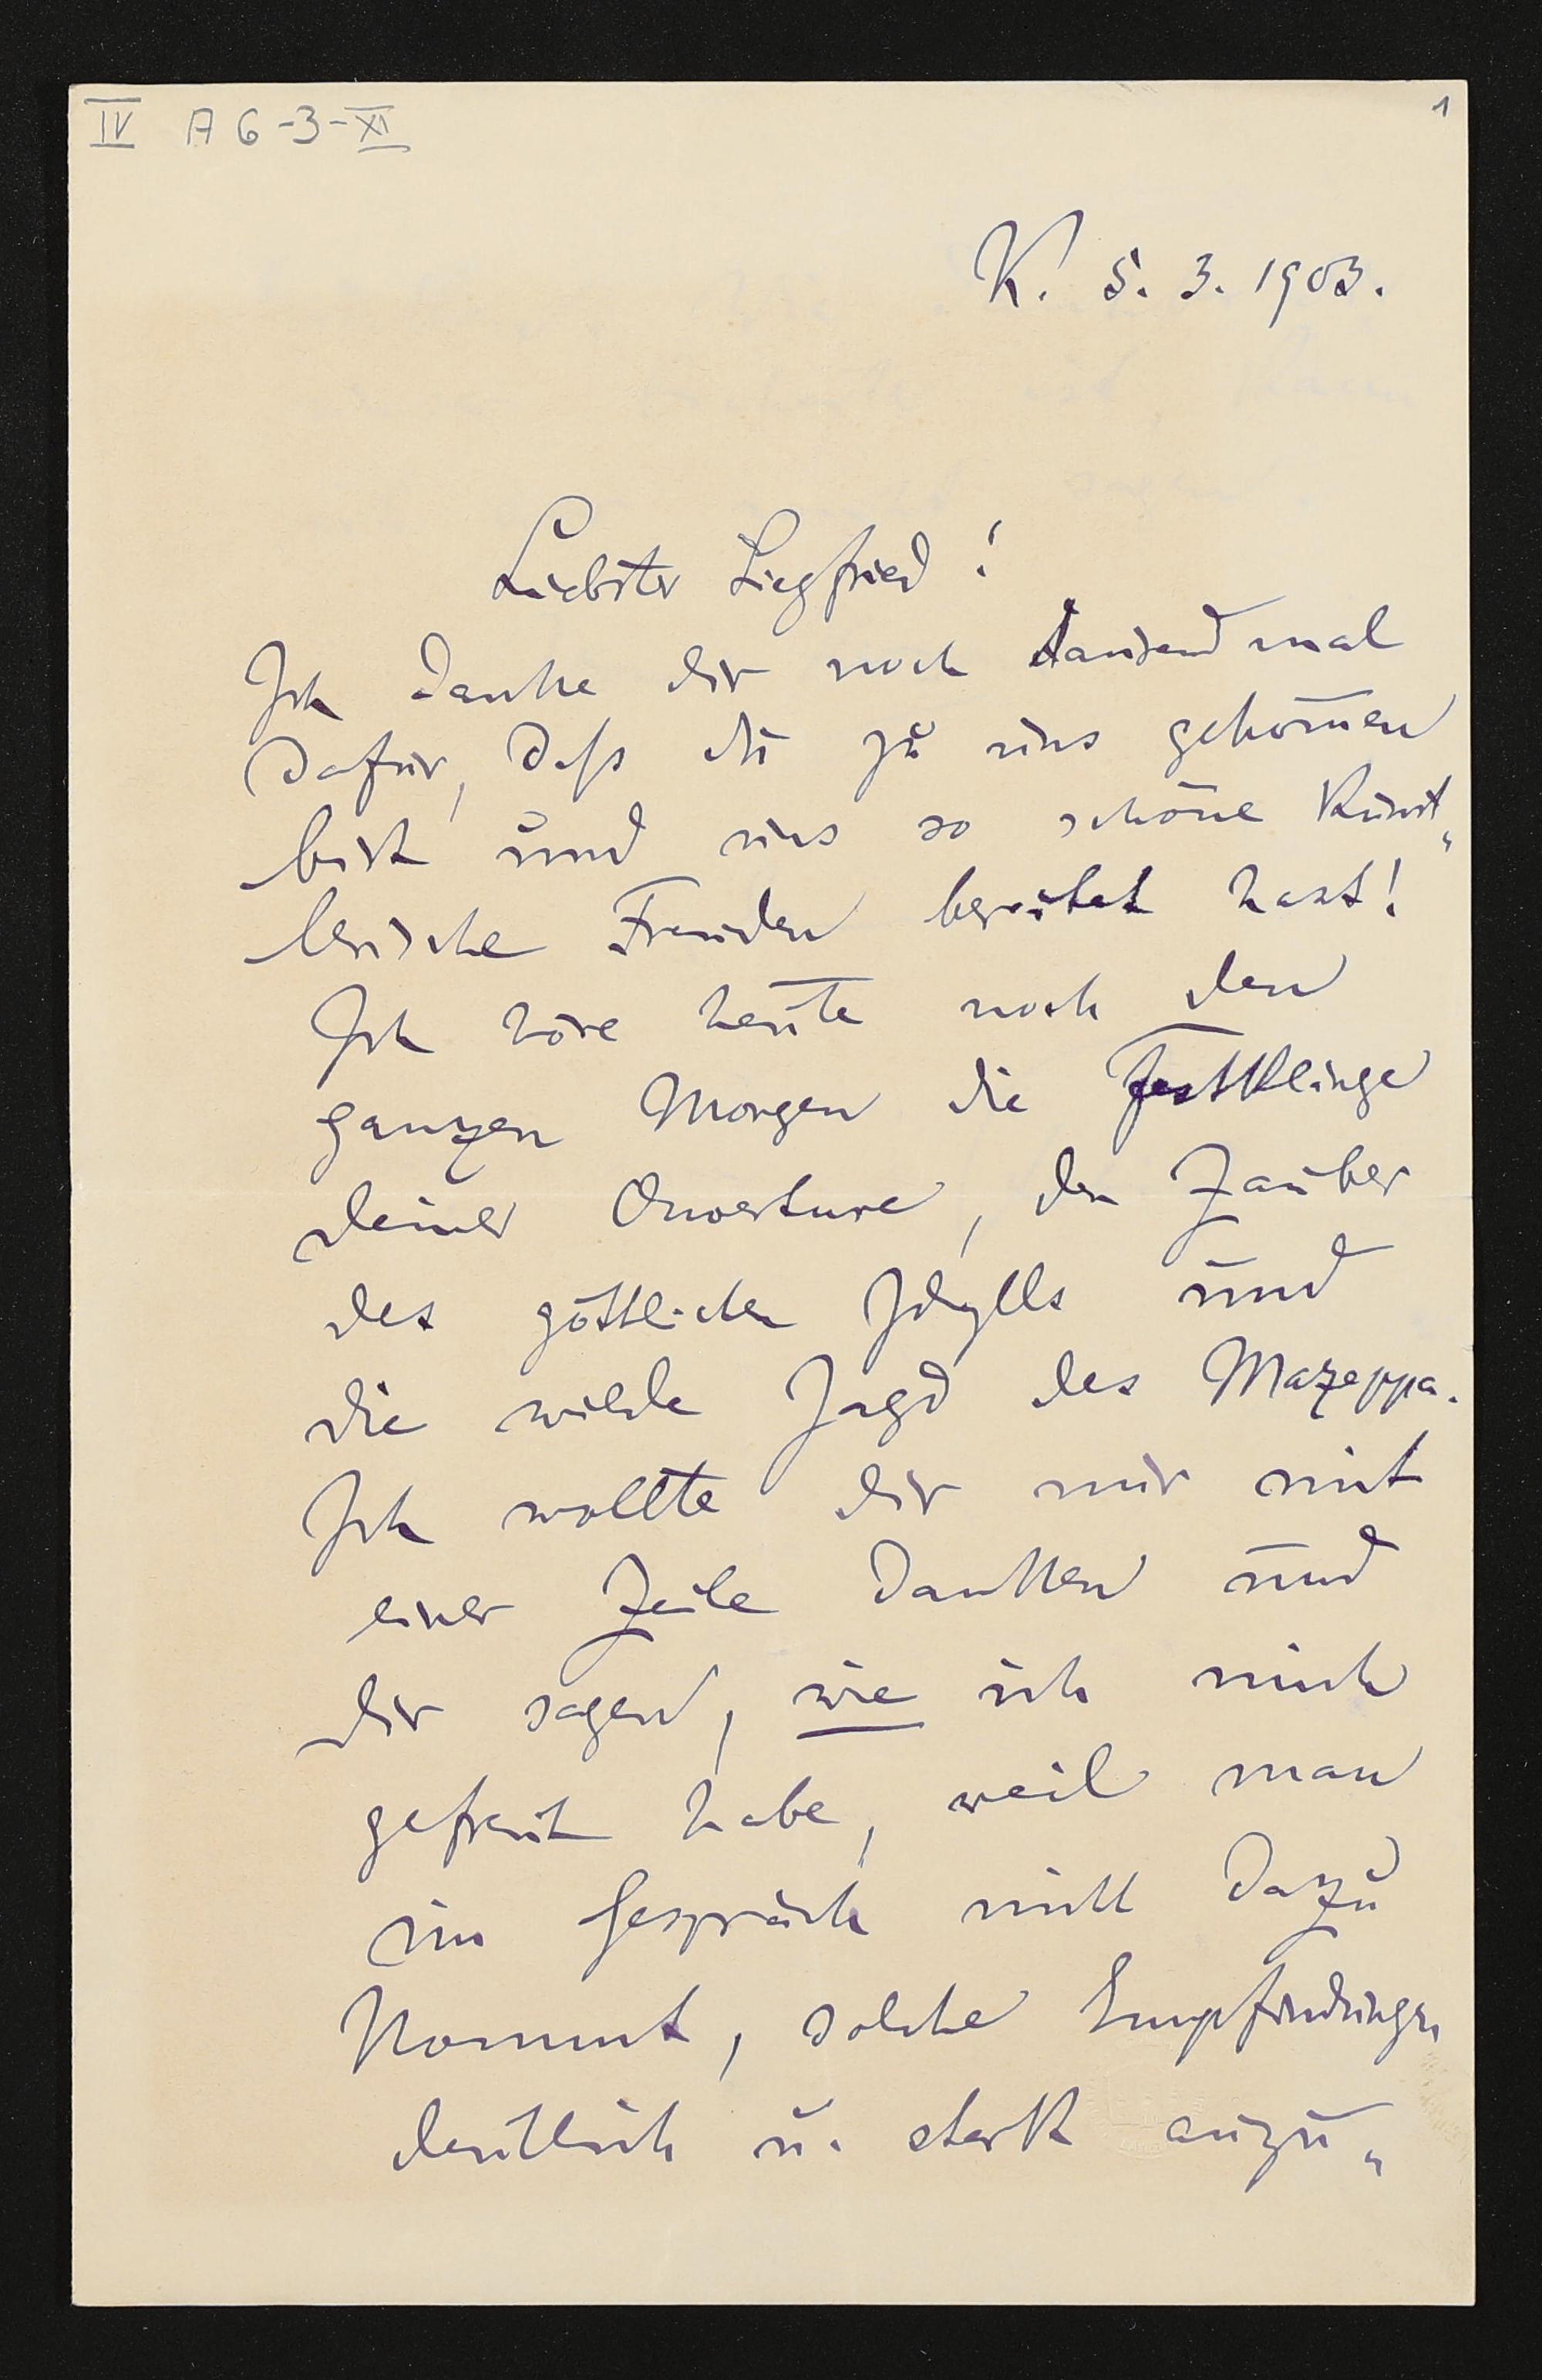 IV A 6-3-XI
1
K. 5. 3. 1903.
Liebster Siegfried!
Ich danke dir noch tausendmal
dafür, daſs du zu uns gekom̅en
bist und uns so schöne Künst„
lerische Freuden bereitet hast!
Ich höre heute noch den
ganzen Morgen die Festklänge
deiner Ouverture, den Zauber
des göttlichen Idylls und
die wilde Jagd des Mazeppa.
Ich wollte dir nur mit
einer Zeile danken und
dir sagen, wie ich mich
gefreut habe, weil man
im Gespräch nicht dazu
kommt, solche Empfindungen
deutlich u. stark auszu„